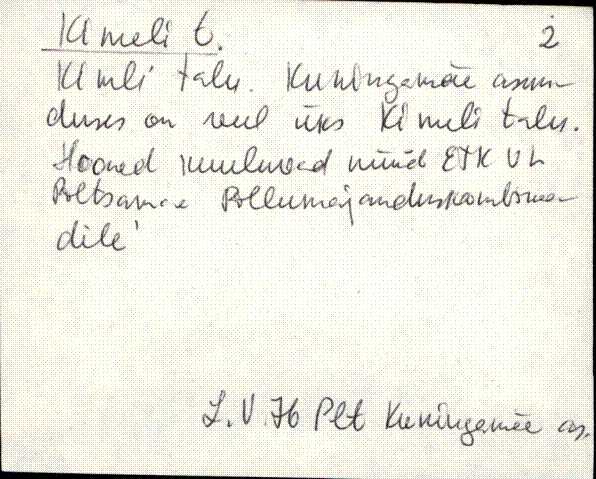 Kimeli t. 2
Kimli talu. Kuningamäe asun-
duses on veel üks Kimeli talu.
Hooned kuuluvad nüüd
Põltsamaa Põllumajanduskombinaa-
dile
L.V. 76 Plt Kuningamäe as.